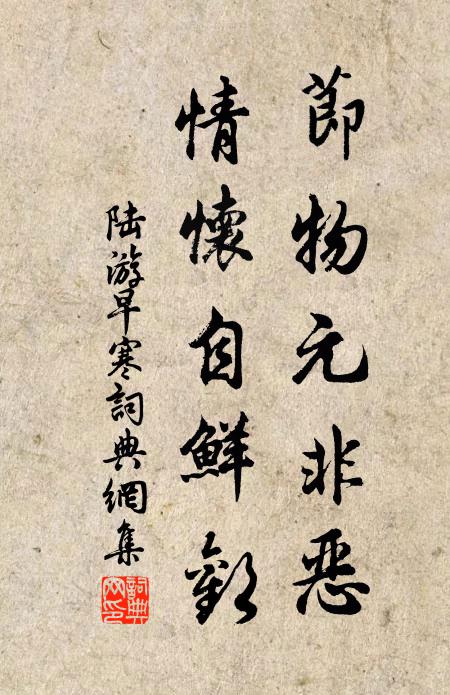 節物元非惡
情懷自鮮歡
陆游早寒詞典網集
詞典網印